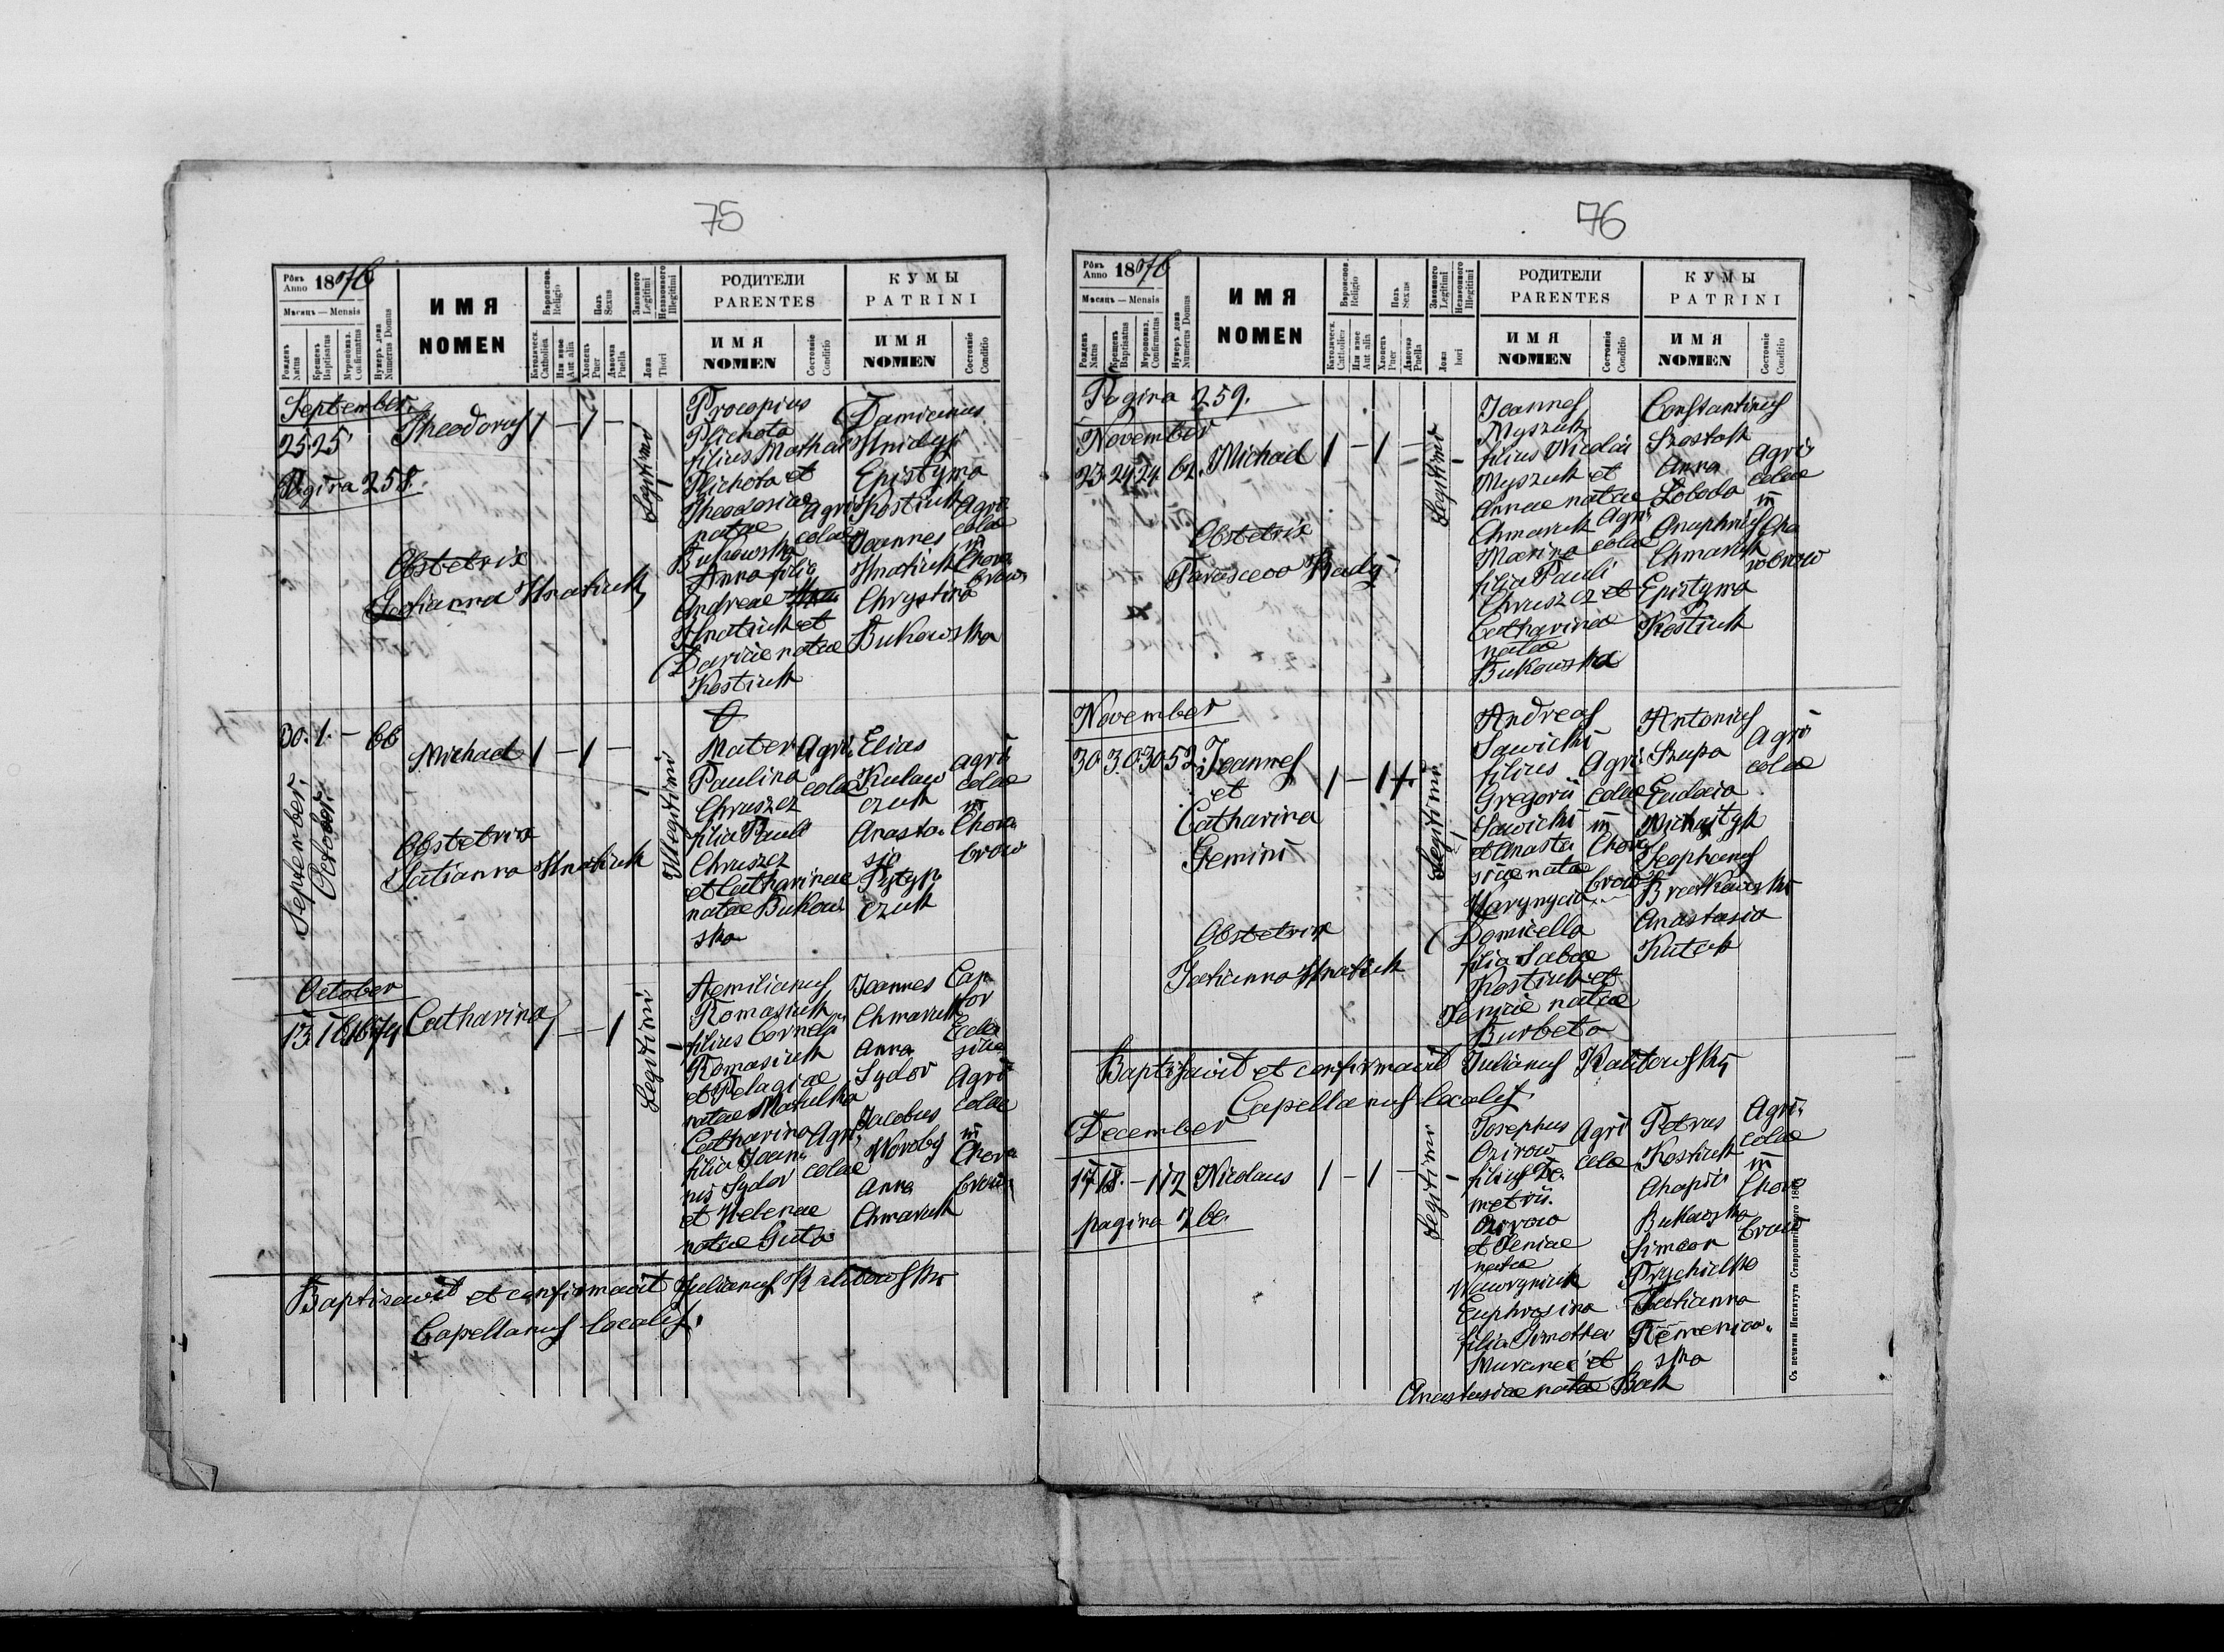 75
Рôкъ Anno 1876
Мѣсяцъ — Mensis
Рожденъ Natus
Крещенъ Baptisatus
Мvропомаз. Confirmatus
Нумеръ дома Numerus Domus
ИМЯ
NOMEN
Вѣроиспов. Religio
Католическ. Catholica
Или иное Aut alia
Полъ Sexus
Хлопецъ Puer
Дѣвочка Puella
Законного Legitimi
Незаконного Illegitimi
Ложа Thori
РОДИТЕЛИ
PARENTES
ИМЯ
NOMEN
Состояніе Conditio
КУМЫ
PATRINI
ИМЯ
NOMEN
Состояніе Conditio
September
25 25
Theodorus 1 – 1 –
Legitimi
Pagina 258.
Obstetrix
Tatianna Hnatiuk
Procopius
Plichota
filius Mathaei
Plichota et
Theodosiae
natae
Bukowska
Anna filia
Andreae
Hnatiuk et
Dariae natae
Kostiuk
Agri
colae
Damianus
Hnidyj
Epistyma
Kostiuk
Joannes
Hnatiuk
Chrystina
Bukowska
Agri
colae
in
Choro
brow
30. 1. – 66
September.
October.
Michael 1 – 1 –
Illegitimi
Obstetrix
Tatianna Hnatiuk
Mater
Paulina
Chruszcz
filia Pauli
Chruszcz
et Catharinae
natae Bukow
ska
Agri
colae
Elias
Kulaw
czuk
Anasta
sia
Pytyp
czuk
Agri
colae
in
Choro
brow
October
13 16 16 74
Catharina 1 – – 1
Legitimi
Aemilianus
Romasiuk
filius Cornelii
Romasiuk
et Pelagiae
natae Matulka
Catharina
filia Joan
nis Sydor
et Helenae
natae Guta
Agri
colae
Joannes
Chmaruk
Anna
Sydor
Jacobus
Woroby
Anna
Chmaruk
Can
tor
Eccle
siae
Agri
colae
in
Choro
brow
Baptisavit et confirmavit Julianus Kalitowski
Capellanus localis.
76
Рôкъ Anno 1876
Мѣсяцъ — Mensis
Рожденъ Natus
Крещенъ Baptisatus
Мvропомаз. Confirmatus
Нумеръ дома Numerus Domus
ИМЯ
NOMEN
Вѣроиспов. Religio
Католическ. Catholica
Или иное Aut alia
Полъ Sexus
Хлопецъ Puer
Дѣвочка Puella
Законного Legitimi
Незаконного Illegitimi
Ложа hori
РОДИТЕЛИ
PARENTES
ИМЯ
NOMEN
Состояніе Conditio
КУМЫ
PATRINI
ИМЯ
NOMEN
Состояніе Conditio
Pagina 259.
November
23. 24. 24. 62. Michael 1 – 1 –
Legitimi
Obstetrix
Parascewa Rudy
Joannes
Myszuk
filius Nicolai
Myszuk et
Annae natae
Chmaruk
Marina
filia Pauli
Chruszcz et
Catharinae
natae
Bukowska
Agri
colae
Constantinus
Szostak
Anna
Loboda
Onuphrius
Chmaruk
Epistyma
Kostiuk
Agri
colae
in
Cho
robrow
November
30. 30. 30 52. Joannes
et
Catharina
Gemini
1 – 1 1
Legitimi
Obstetrix
Tatianna Hnatiuk
Andreas
Sawicki
filius
Gregorii
Sawicki
et Anasta
siae natae
Harynycia
Domicella
filia Sabae
Kostiuk et
Xeniae natae
Burbeta
Agri
colae
in
Choro
brow
Antonius
Szupa
Eudocia
Michajtyk
Stephanus
Bratkowski
Anastasia
Kutak
Agri
colae
Baptisavit et confirmavit Julianus Kalitowski
Capellanus localis
December
17 18. – 112 Nicolaus 1 – 1 –
Legitimi
pagina 260.
Josephus
Ozirow
filius De
metrii
Ozirow
et Xeniae
natae
Wawryniuk
Euphrosina
filia Timothei
Muraneć et
Anastasiae natae Bak
Agri
colae
Petrus
Kostiuk
Agapia
Bukowska
Simeon
Prychidko
Tatianna
Remenica
ska
Agri
colae
in
Choro
brow
Съ печатни Института Ставропигійского